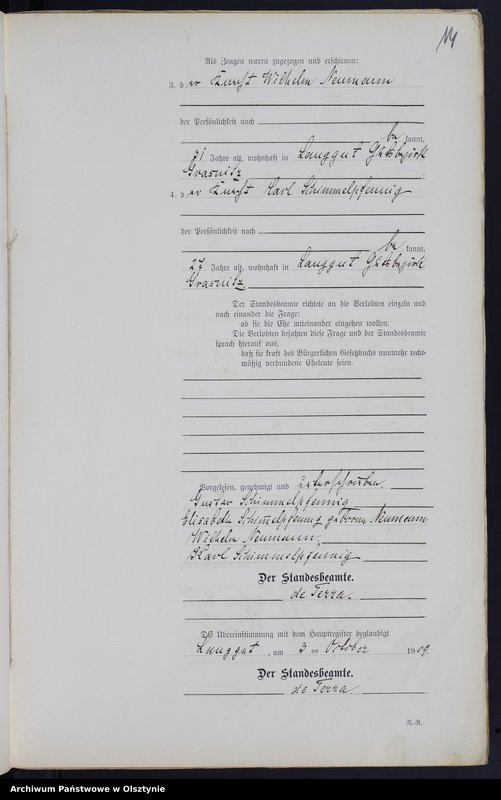 14
Als Zeugen waren zugezogen und erschienen:
3. der Knecht Wilhelm Neumann
der Persönlichkeit nach
bekannt,
71 Jahre alt, wohnhaft in Langgut Gutsbezirk
Grasnitz ;
4. der Knecht Karl Schimmelpfennig
der Persönlichkeit nach
bekannt,
27 Jahre alt, wohnhaft in Langgut Gutsbezirk
Grasnitz
Der Standesbeamte richtete an die Verlobten einzeln und
nach einander die Frage:
ob sie die Ehe miteinander eingehen wollen.
Die Verlobten bejahten diese Frage und der Standesbeamte
sprach hierauf aus,
daß sie kraft des Bürgerlichen Gesetzbuchs nunmehr recht-
mäßig verbundene Eheleute seien.
Vorgelesen, genehmigt und unterschrieben.
Gustav Schimmelpfennig
Elisabeth Schimelpfennig geborne Neumann
Wilhelm Neumann.
Karl Schimmelpfennig
Der Standesbeamte.
de Terra.
Die Übereinstimmung mit dem Hauptregister beglaubigt
Langgut, am 3 ten October 1909.
Der Standesbeamte.
de Terra
N.-R.
Archiwum Państwowe w Olsztynie